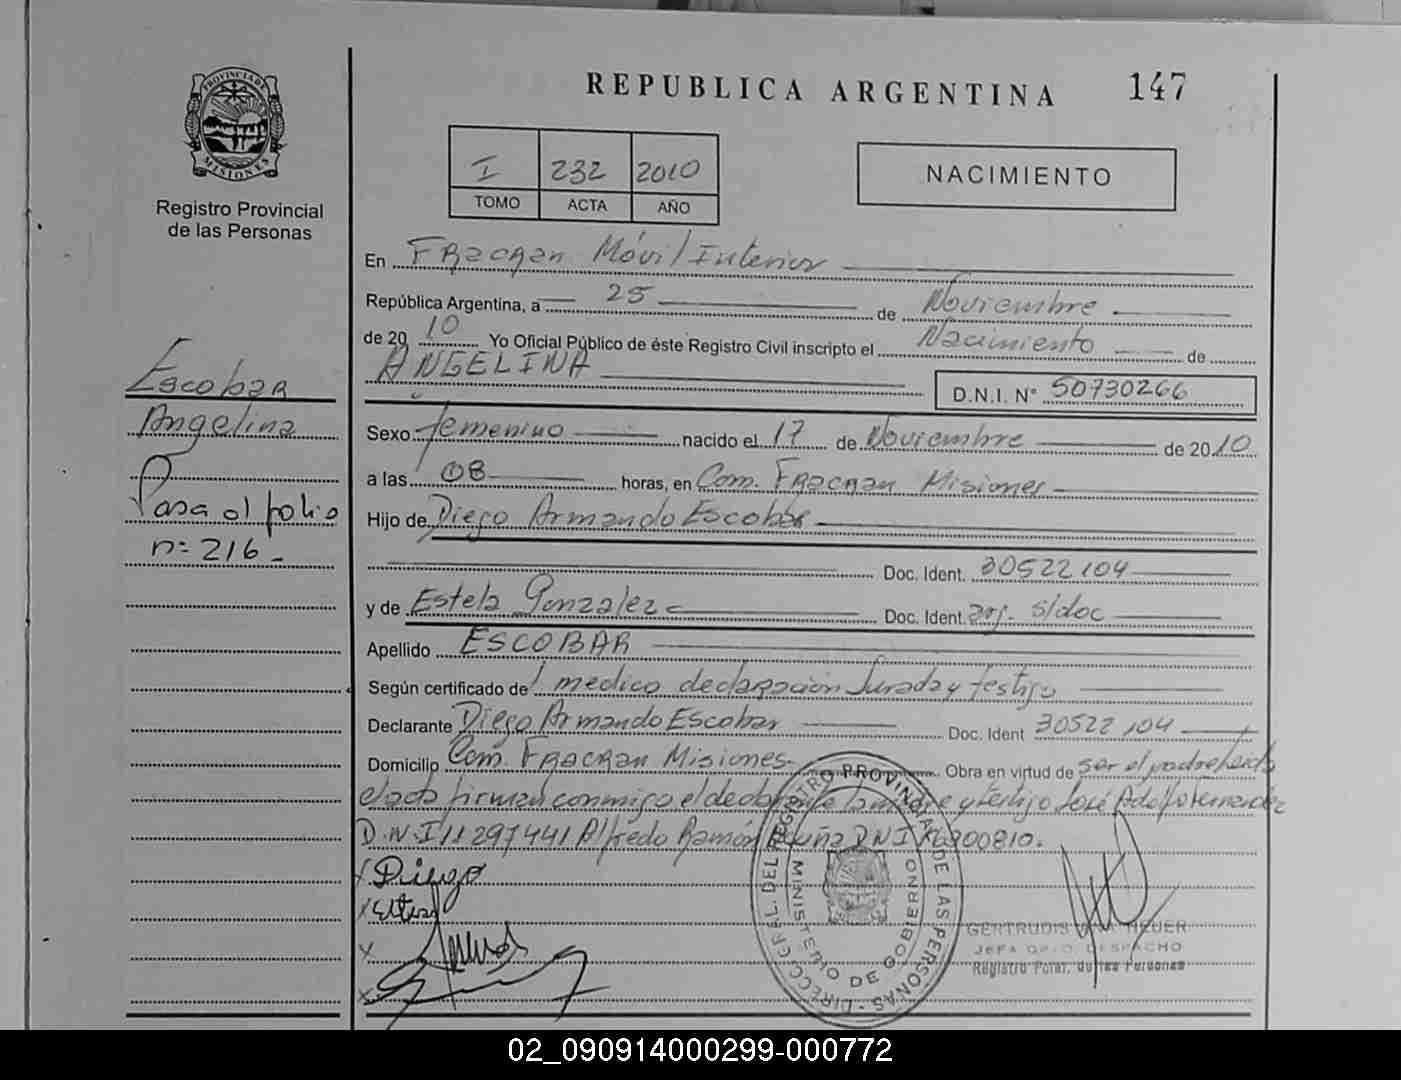 REPUBLICA ARGENTINA
147
PROVINCIA DE
MISIONES
Registro Provincial
de las Personas
I 232 2010
TOMO ACTA AÑO
NACIMIENTO
En Fracran Móvil Interior
República Argentina, a 25 de Noviembre
de 2010 Yo Oficial Público de éste Registro Civil inscripto el Nacimiento de
ANGELINA
D.N.I. N° 50730266
Sexo femenino nacido el 17 de Noviembre de 2010
a las 08 horas, en Com. Fracran Misiones
Hijo de Diego Armando Escobar
Doc. Ident. 30522104
y de Estela Gonzalez Doc. Ident. arg. s/doc
Apellido ESCOBAR
Según certificado de medico declaracion Jurada y testigo
Declarante Diego Armando Escobar Doc. Ident 30522104
Domicilio Com. Fracran Misiones Obra en virtud de ser el padre leida
el acta firman conmigo el declarante la madre y testigo José Adolfo Fernandez
D.N.I 11297441 Alfredo Ramón DNI
Escobar
Angelina
Pasa al folio
n: 216
x Diego
x
x
x
DIRECC. GRAL. DEL REGISTRO PROVINCIAL DE LAS PERSONAS
MINISTERIO DE GOBIERNO
GERTRUDIS HEUER
JEFA DPTO. DESPACHO
Registro Pcial. de las Personas
02_090914000299-000772